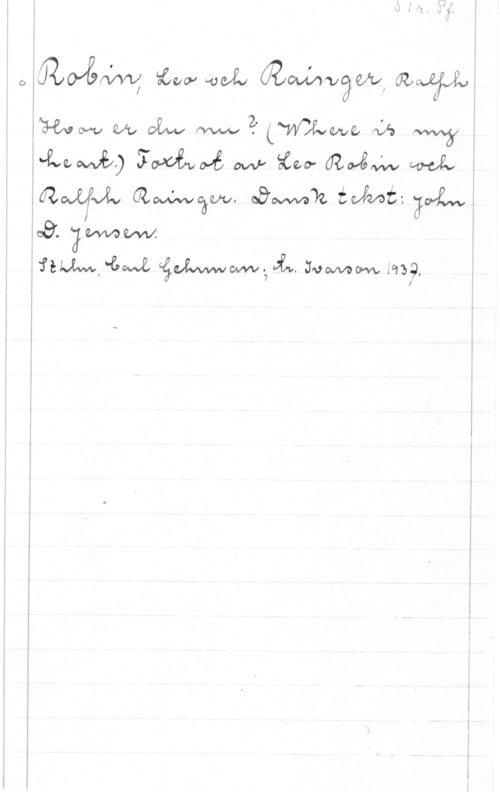 S 1 r. Pf.
Robin, Leo och Rainger, Ralph
Hvor er du nu? (Where is my
heart.) Foxtrot av Leo Robin och
Ralph Rainger. Dansk tekst: John
D. Jensen.
Sthlm, Carl Gehrman; tr. Ivarson 1937.